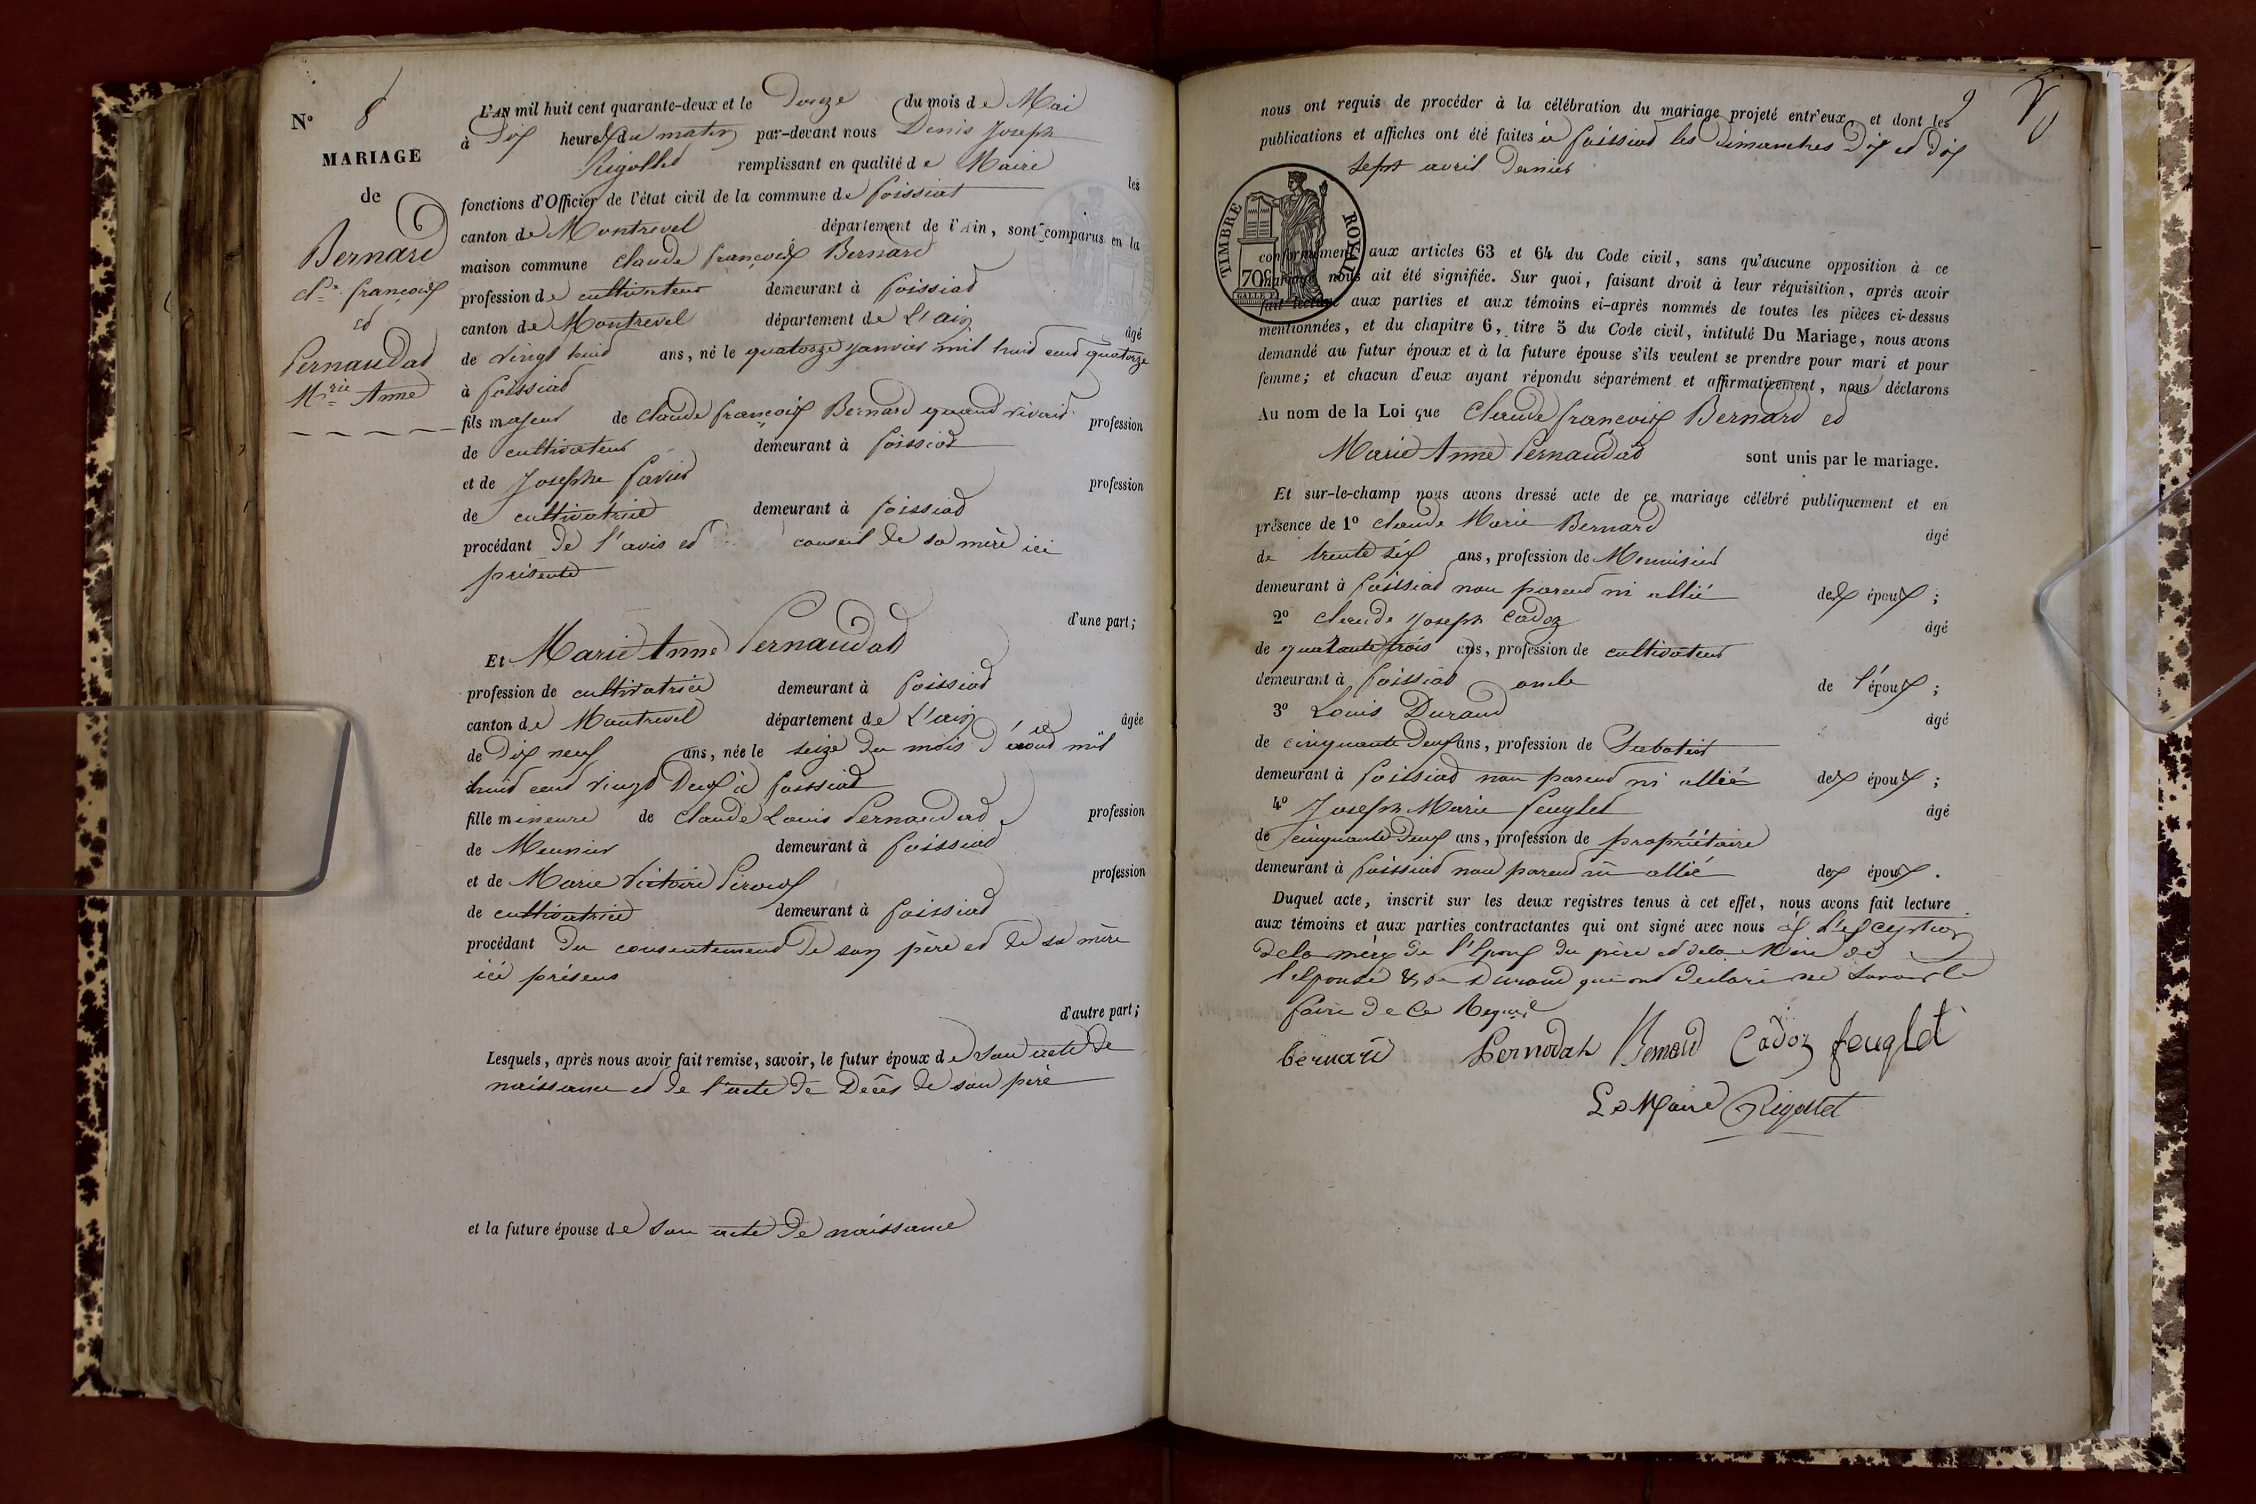 N° 8
MARIAGE
de
Bernard
Cl.de françois
et
Pernaudat
M.rie Anne
L'AN mil huit cent quarante-deux et le Douze du mois de Mai
à Dix heures du matin par-devant nous Denis Joseph
Rigollet remplissant en qualité de Maire les
fonctions d'Officier de l'état civil de la commune de foissiat
canton de Montrevel département de l'Ain, sont comparus en la
maison commune Claude françois Bernard
profession de cultivateur demeurant à foissiat
canton de Montrevel département de L'ain âgé
de vingt huit ans, né le quatorze janvier mil huit cent quatorze
à foissiat
fils majeur de Claude françois Bernard quand vivait profession
de cultivateur demeurant à foissiat
et de Josephe favier profession
de cultivatrice demeurant à foissiat
procédant de l'avis et conseil de sa mère ici
présente
d'une part;
Et Marie Anne Pernaudat
profession de cultivatrice demeurant à foissiat
canton de Montrevel département de L'ain âgée
de Dix neuf ans, née le seize du mois d'aout mil
huit cent vingt Deux à foissiat
fille mineure de Claude Louis Pernaudat profession
de Meunier demeurant à foissiat
et de Marie Victoire Piroux profession
de cultivatrice demeurant à foissiat
procédant du consentement de son père et de sa mère
ici présens
d'autre part;
Lesquels, après nous avoir fait remise, savoir, le futur époux de son acte de
naissance et de l'acte de Décès de son père
et la future épouse de son acte de naissance
9
nous ont requis de procéder à la célébration du mariage projeté entr'eux, et dont les
publications et affiches ont été faites à foissiat les dimanches Dix et dix
sept avril dernier
TIMBRE ROYAL
70c
conformément aux articles 63 et 64 du Code civil, sans qu'aucune opposition à ce
mariage nous ait été signifiée. Sur quoi, faisant droit à leur réquisition, après avoir
fait lecture aux parties et aux témoins ci-après nommés de toutes les pièces ci-dessus
mentionnées, et du chapitre 6, titre 5 du Code civil, intitulé Du Mariage, nous avons
demandé au futur époux et à la future épouse s'ils veulent se prendre pour mari et pour
femme; et chacun d'eux ayant répondu séparément et affirmativement, nous déclarons
Au nom de la Loi que Claude françois Bernard et
Marie Anne Pernaudat sont unis par le mariage.
Et sur-le-champ nous avons dressé acte de ce mariage célébré publiquement et en
présence de 1° Claude Marie Bernard âgé
de trente six ans, profession de Menuisier
demeurant à foissiat non parent ni allié des époux;
2° Claude Joseph Cadoz âgé
de quarante trois ans, profession de cultivateur
demeurant à foissiat oncle de l'époux;
3° Louis Durand âgé
de cinquante Deux ans, profession de Sabotier
demeurant à foissiat non parent ni allié des époux;
4° Joseph Marie feuglet âgé
de cinquante Deux ans, profession de propriétaire
demeurant à foissiat non parent ni allié des époux.
Duquel acte, inscrit sur les deux registres tenus à cet effet, nous avons fait lecture
aux témoins et aux parties contractantes qui ont signé avec nous à l'exception
de la mère de l'Epoux du père et de la Mère de
l'Epouse & de Durand qui ont Declaré ne savoir le
faire de Ce Requis
bernard Pernodat Bernard Cadoz feuglet
Le Maire Rigollet